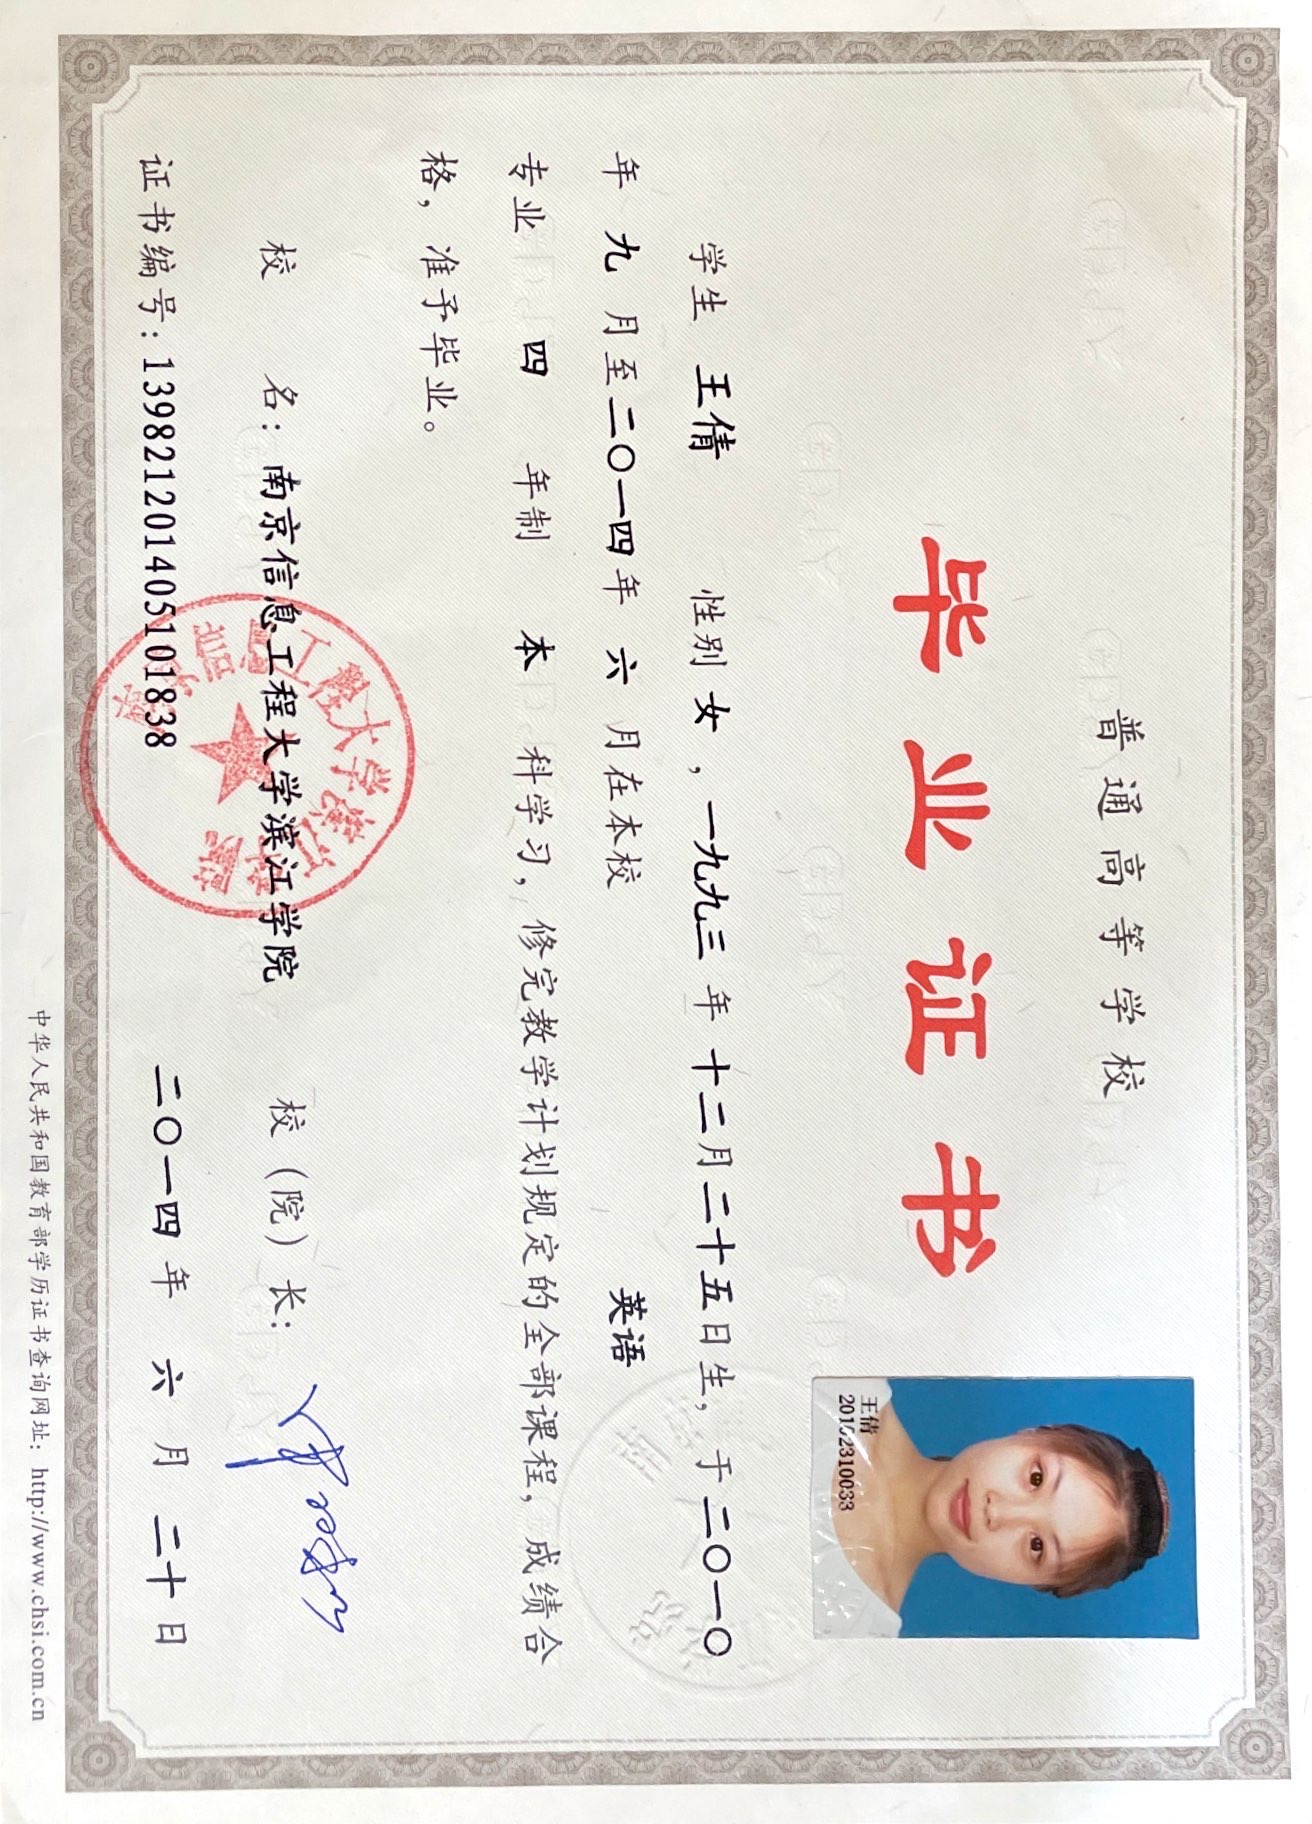 普通高等学校
毕业证书
王倩
学生 王倩 性别 女，一九九三 年 十二月二十五日生，于二〇一〇
年 九 月至二〇一四年 六 月在本校 英语
专业 四 年制 本 科学习，修完教学计划规定的全部课程，成绩合
格，准予毕业。
校 名：南京信息工程大学滨江学院 校（院）长：
证书编号：139821201405101838 二〇一四年 六 月 二十日
南京信息工程大学滨江学院
中华人民共和国教育部学历证书查询网址：http://www.chsi.com.cn